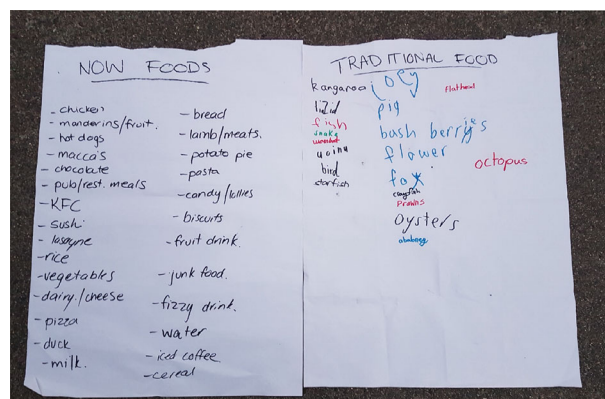 NOW FOODS
- chicken
- manderins/fruit.
- hot dogs
- macca's
- chocolate
- pub/rest. meals
- KFC
- sushi
- lasagne
- rice
- vegetables
- dairy/cheese
- pizza
- duck
- milk.
- bread
- lamb/meats.
- potato pie
- pasta
- candy/lollies
- biscuits
- fruit drink.
- junk food.
- fizzy drink.
- water
- iced coffee
- cereal
TRADITIONAL FOOD
kangaroo
lizid
fish
snake
bird
starfish
joey
pig
bush berries
flower
fox
crayfish
Prawns
oysters
flathead
octopus